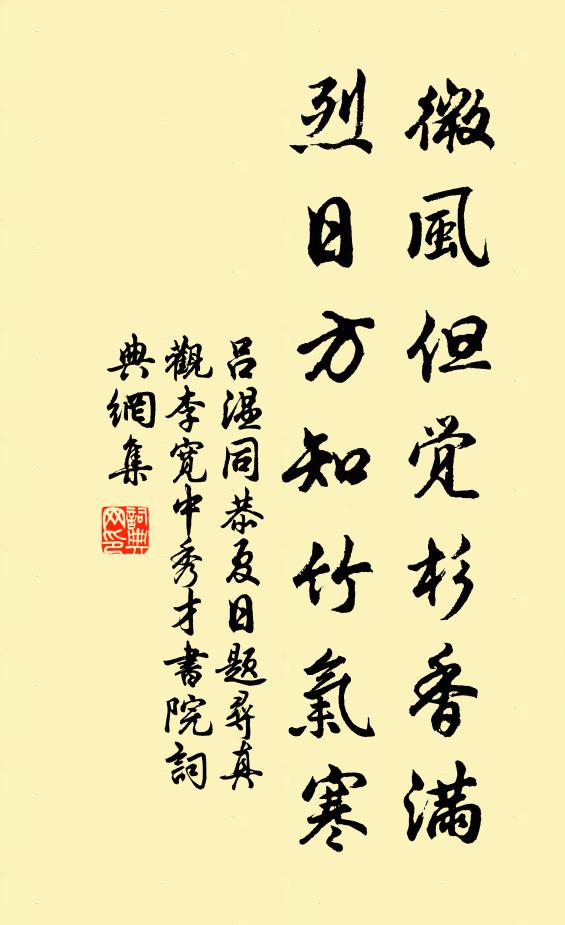 微風但觉杉香滿
烈日方知竹氣寒
吕温同恭夏日題尋真
觀李寬中秀才書院詞
典網集
詞典网印